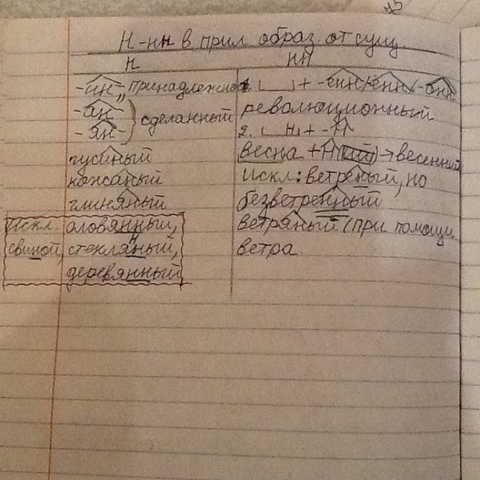 Н-нн в прил. образ. от сущ.
н нн
-ин- „принадлежно
-ан-
-ян- } сделанный
гусиный
кожаный
глиняный
искл. оловянный,
свиной, стеклянный,
деревянный
1. + -онн/енн/-онн
революционный
2. н + -н
весна + н(ый) → весенний
искл: ветреный, но
безветренный
ветряный (при помощи
ветра.